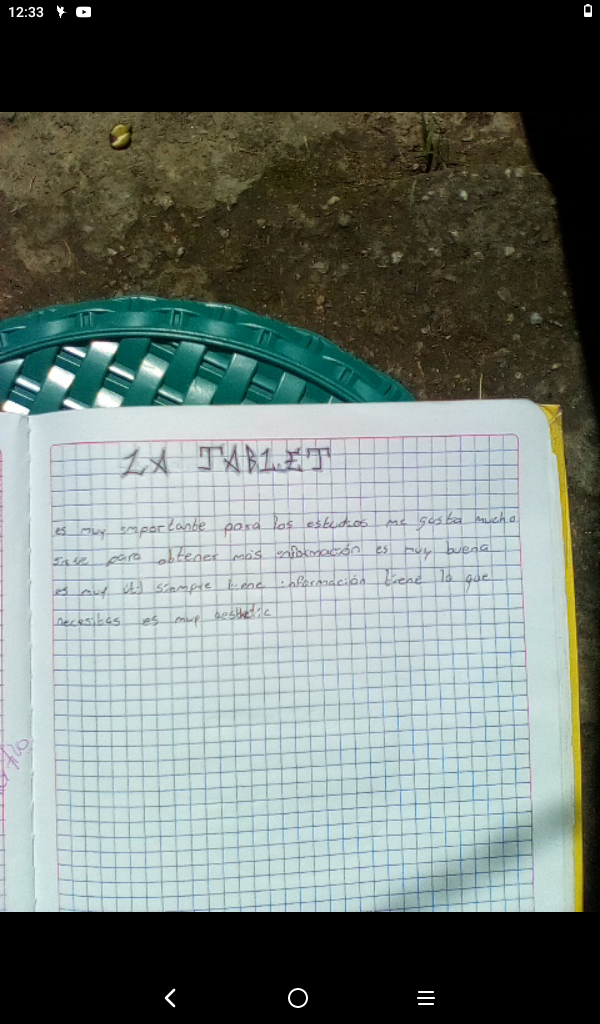 12:33
LA TABLET
es muy importante para los estudios me gusta mucho
sirve para obtener más información es muy buena
es muy útil siempre tiene información tiene lo que
necesitas es muy aesthetic